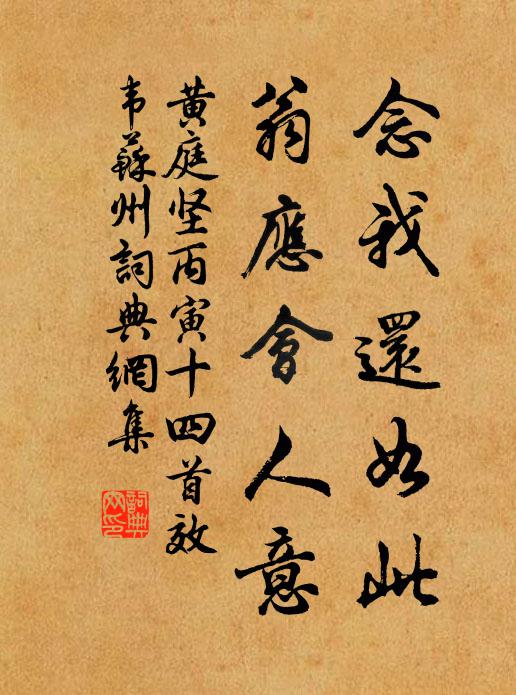 念我還如此
翁應會人意
黄庭坚丙寅十四首效
韦蘇州詞典網集
詞典
网印